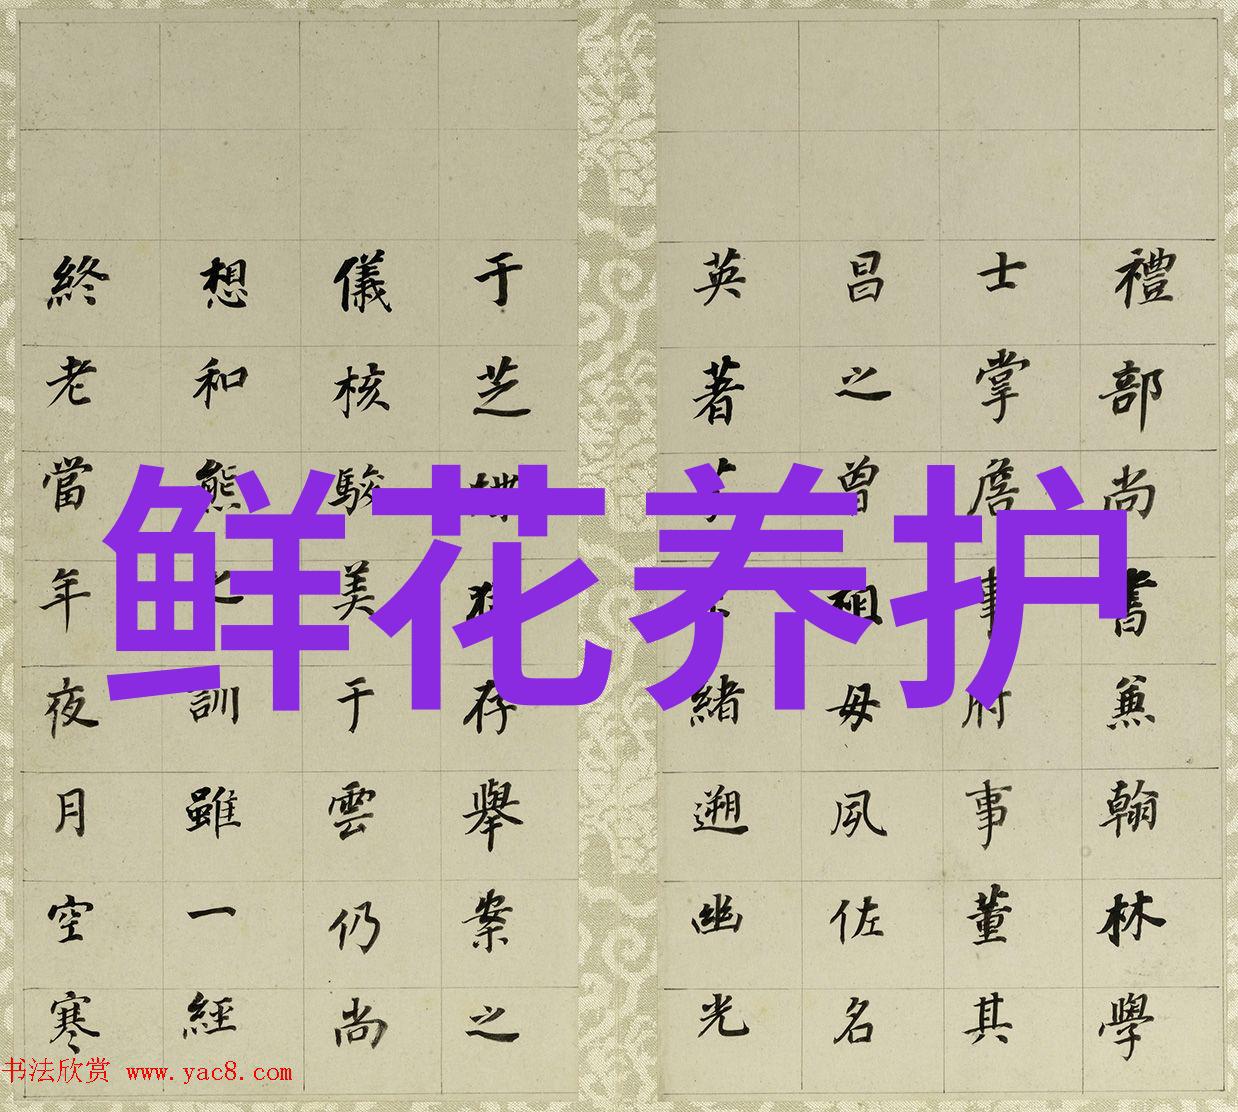 鲜花养护
禮部尚書兼翰林學
士掌詹事府事董其
昌之曾祖母夙佐名
英著緒遡幽光
于芝存舉案之
儀核駿美于雲仍尚
想和熊之訓雖一經
終老當年夜月空寒
书法欣赏 www.yac8.com